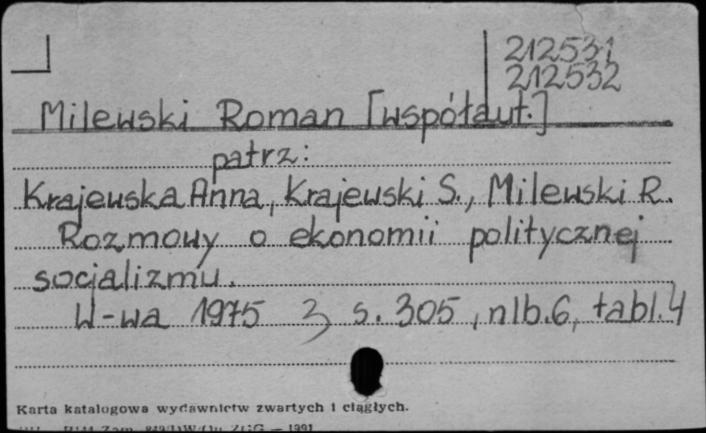 212531
212532
Milewski Roman [współaut.]
patrz:
Krajewska Anna, Krajewski S., Milewski R.
Rozmowy o ekonomii politycznej
socjalizmu.
W-wa 1975 s. 305, nlb.6, tabl.4
Karta katalogowa wydawnictw zwartych i ciągłych.
Zam. ZGG — 1991